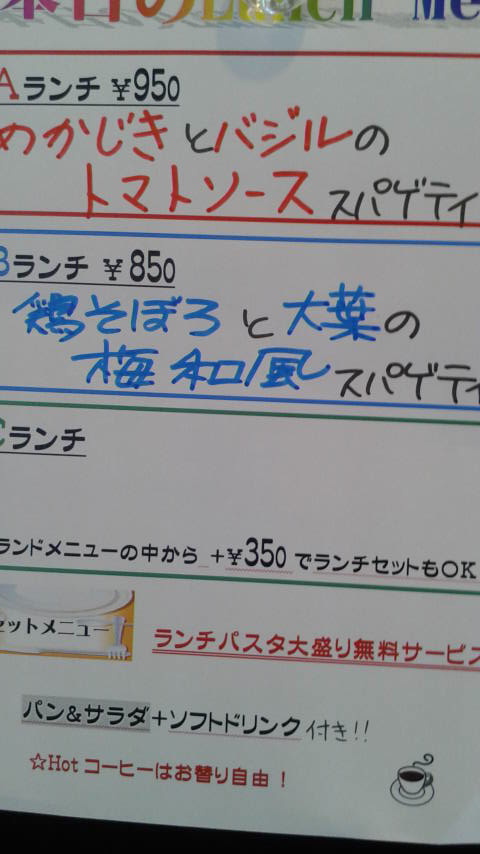 本日のLunch Me
Aランチ ¥950
めかじきとバジルの
トマトソース スパゲティ
Bランチ ¥850
鶏そぼろと大葉の
梅和風 スパゲティ
Cランチ
ランドメニューの中から +¥350 でランチセットもOK
セットメニュー
ランチパスタ大盛り無料サービス
パン&サラダ+ソフトドリンク付き!!
☆Hot コーヒーはお替り自由！